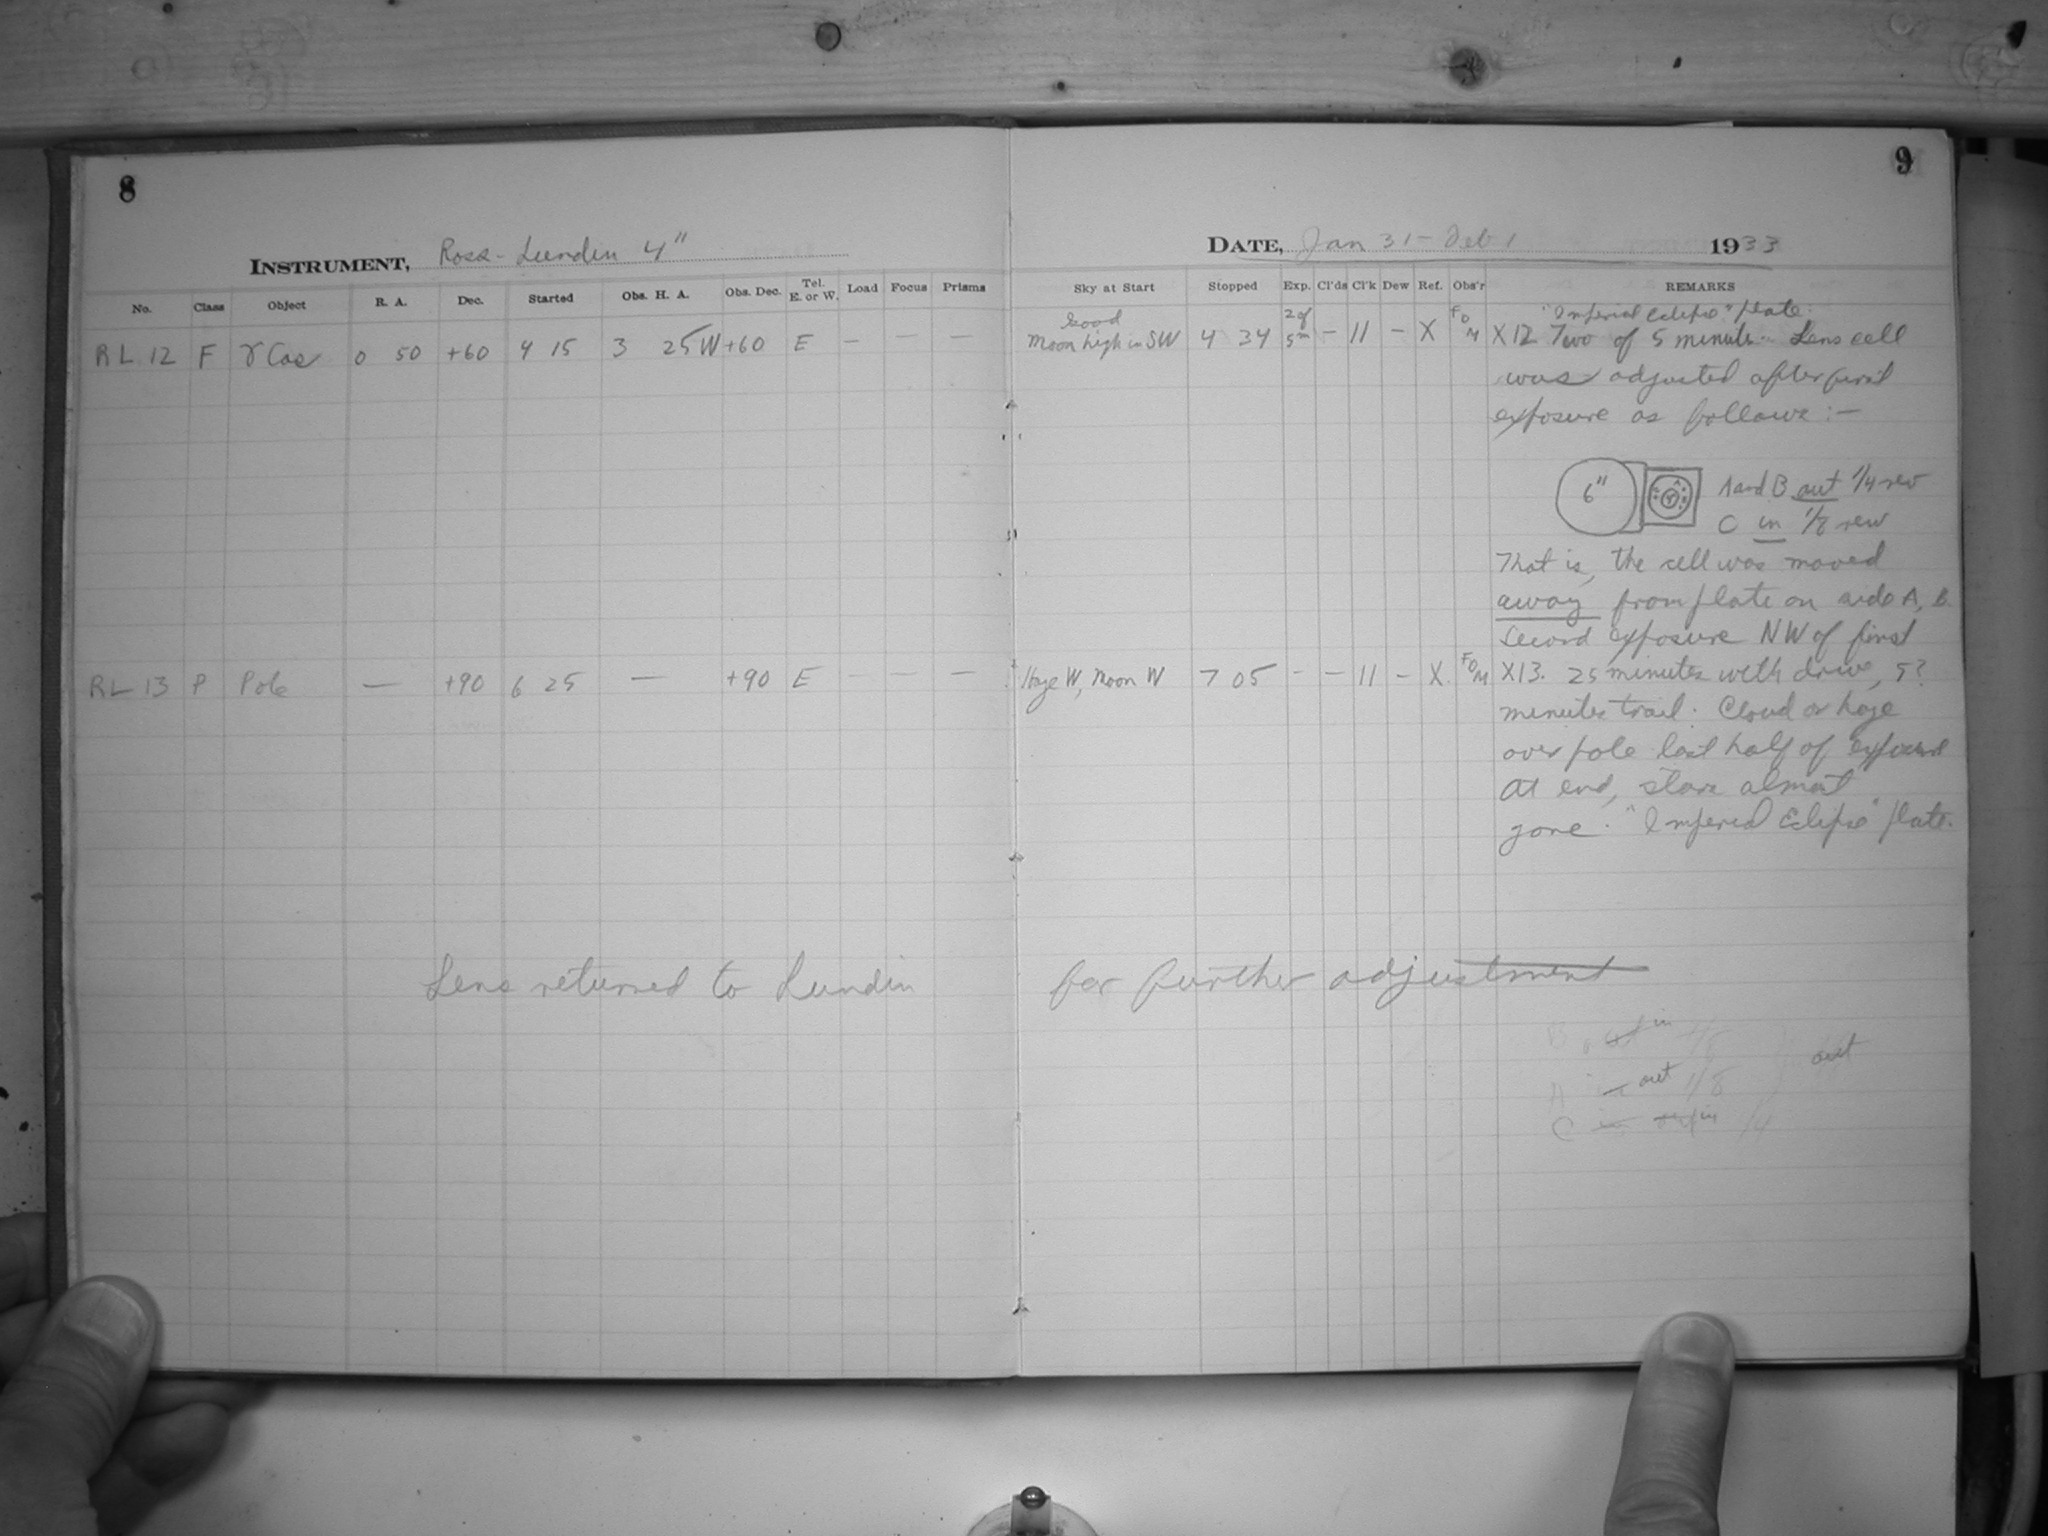 8
INSTRUMENT, Ross-Lundin 4"
No. Class Object R. A. Dec. Started Obs. H. A. Obs. Dec. Tel. E. or W. Load Focus Prisms
RL 12 F γ Cas 0 50 +60 4 15 3 25W +60 E — — —
RL 13 P Pole — +90 6 25 — +90 E — — —
9
DATE, Jan 31 - Feb 1 1933
Sky at Start Stopped Exp. Cl'ds Cl'k Dew Ref. Obs'r REMARKS
Good
Moon high in SW 4 34 2 of 5m — 11 — X FOM
"Imperial Eclipse" plate.
X12 Two of 5 minutes. Lens cell
was adjusted after first
exposure as follows :—
6" A and B out 1/4 rev
C in 1/8 rev
That is, the cell was moved
away from plate on side A, B.
Second exposure NW of first
Haze W, Moon W 7 05 - — 11 — X. FOM X13. 25 minutes with drive, 5?
minutes trail. Cloud or haze
over pole last half of exposure
At end, stars almost
gone. "Imperial Eclipse" plate.
Lens returned to Lundin for further adjustment
B in 1/8
A out 1/8 out
C in 1/4